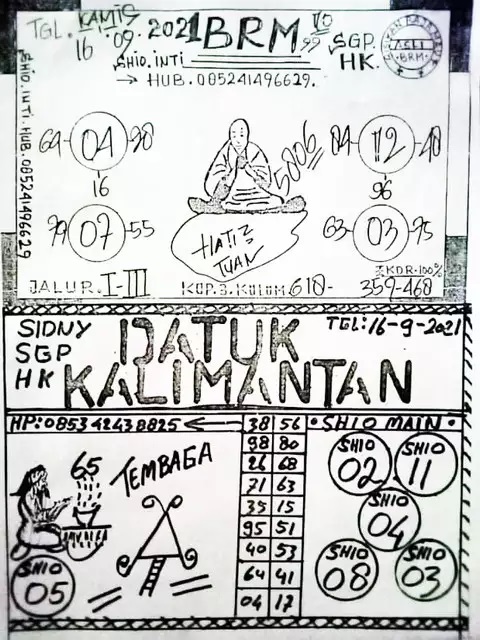 TGL. KAMIS 16 '09. 2021 BRM 99 SGP. HK.
SHIO. INTI
→ HUB. 085241496629.
ASLI
BRM
SHIO. INTI. HUB. 085241496629
69 04 90
16
5806
04 12 40
96
79 07 55
63 03 75
HATI2
TUAN
JALUR. I-III
KOP. 3. KOLOM. 610-
EKOR. 100%
359-460
SIDNY
SGP
HK
DATUK
KALIMANTAN
TGL: 16-9-2021
HP: 085342438825
65
TEMBAGA
SHIO
05
38 56
98 80
26 68
71 63
35 15
95 51
40 53
64 41
04 17
• SHIO MAIN •
SHIO
02
SHIO
11
SHIO
04
SHIO
08
SHIO
03